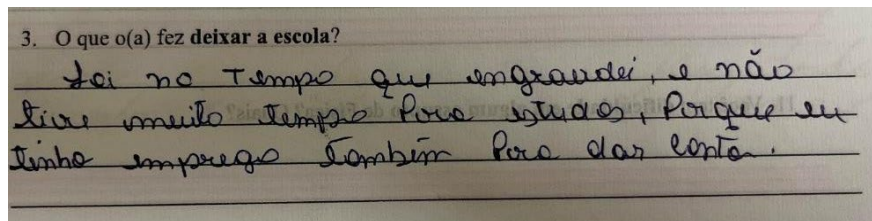 3. O que o(a) fez deixar a escola?
foi no Tempo que engraudei, e não
tive muito tempo Para estudos, Porque eu
tinha emprego também Para dar conta.